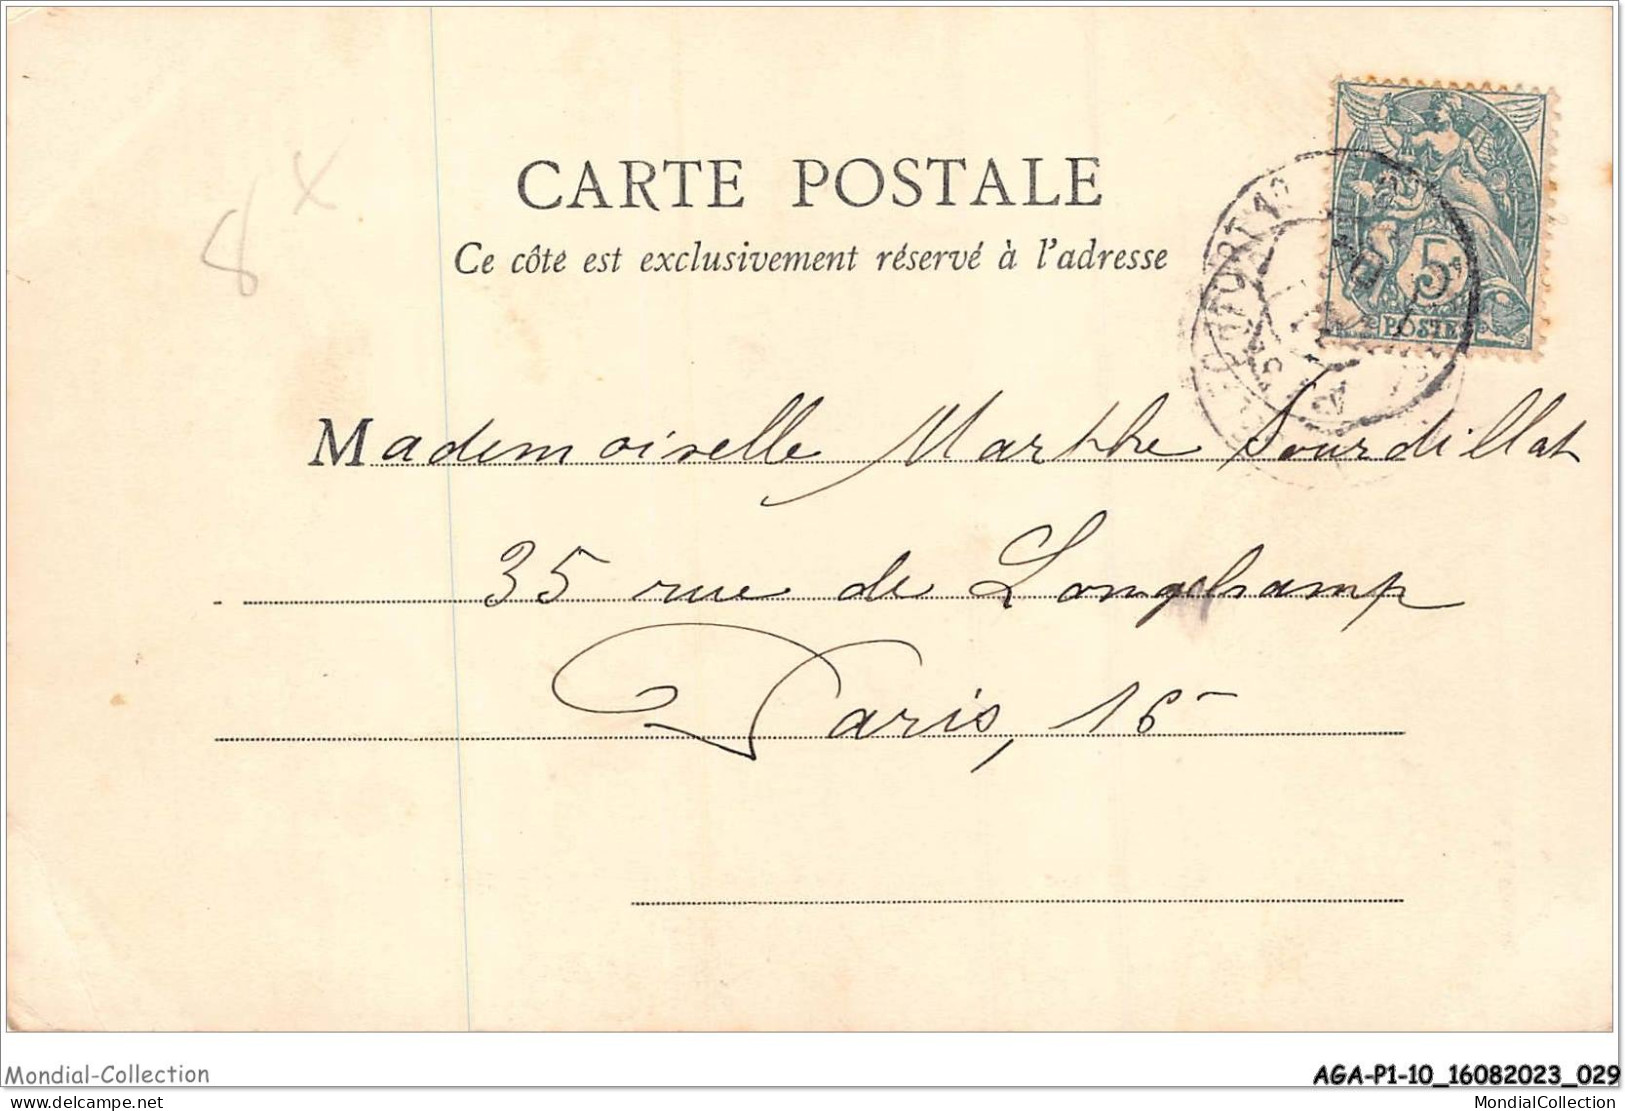 8 x
CARTE POSTALE
Ce côté est exclusivement réservé à l'adresse
5c
POSTES
Mademoiselle Marthe Sourdillat
35 rue de Longchamp
Paris, 16
Mondial-Collection
AGA-P1-10_16082023_029
www.delcampe.net
MondialCollection